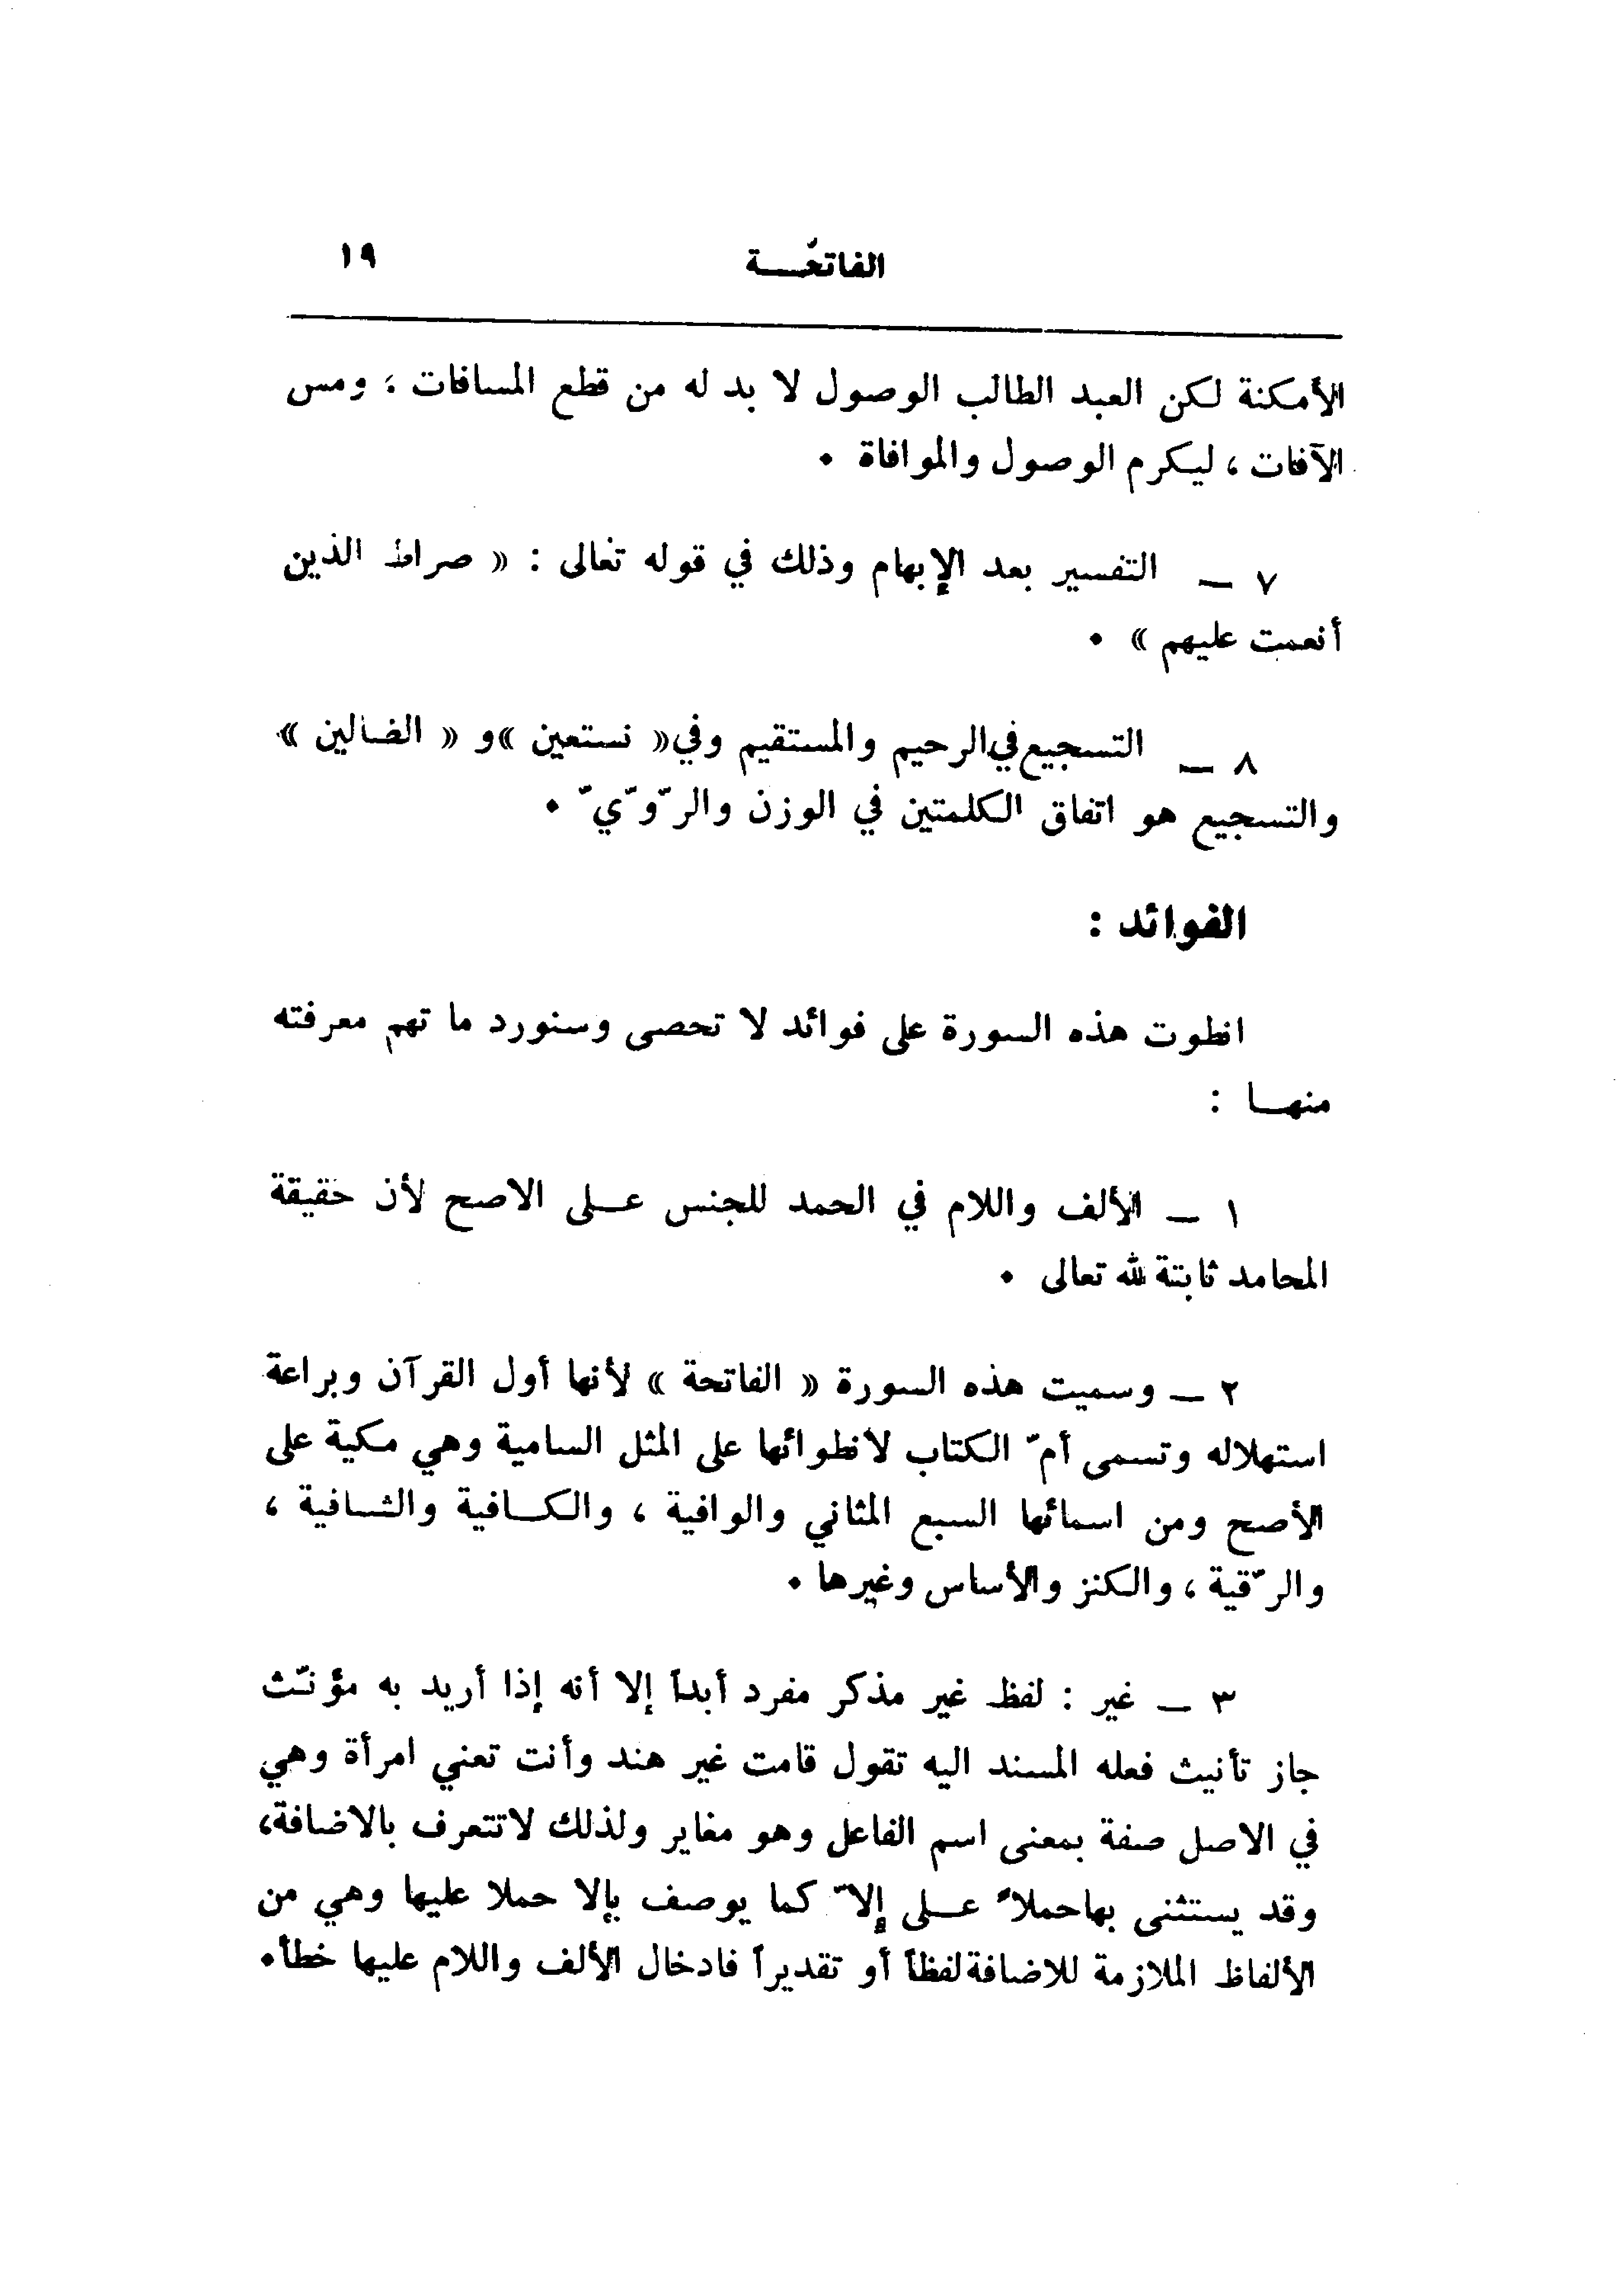 الفاتحـــة ١٩
الأمكنة لكن العبد الطالب الوصول لا بد له من قطع المسافات ؛ ومس
الآفات ، ليكرم الوصول والموافاة .
٧ ـ التفسير بعد الإبهام وذلك في قوله تعالى : « صراط الذين
أنعمت عليهم » .
٨ ـ التسجيع في الرحيم والمستقيم وفي « نستعين » و « الضالين »
والتسجيع هو اتفاق الكلمتين في الوزن والرّوّيّ .
الفوائد :
انطوت هذه السورة على فوائد لا تحصى وسنورد ما تهم معرفته
منهــا :
١ ـ الألف واللام في الحمد للجنس عــلى الاصح لأن حقيقة
المحامد ثابتة لله تعالى .
٢ ـ وسميت هذه السورة « الفاتحة » لأنها أول القرآن وبراعة
استهلاله وتسمى أمّ الكتاب لانطوائها على المثل السامية وهي مكية على
الأصح ومن اسمائها السبع المثاني والوافية ، والكــافية والشــافية ،
والرّقية ، والكنز والأساس وغيرها .
٣ ـ غير : لفظ غير مذكر مفرد أبداً إلا أنه إذا أريد به مؤنّث
جاز تأنيث فعله المسند اليه تقول قامت غير هند وأنت تعني امرأة وهي
في الاصل صفة بمعنى اسم الفاعل وهو مغاير ولذلك لاتتعرف بالاضافة،
وقد يستثنى بها حملاً عــلى إلاّ كما يوصف بإلا حملا عليها وهي من
الألفاظ الملازمة للاضافة لفظاً أو تقديراً فادخال الألف واللام عليها خطأ.